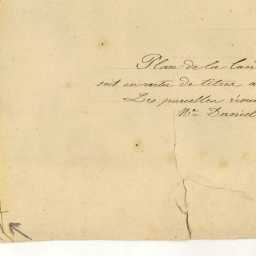 Plan de la
soit en vertu de titres a
Les parcelles
Mr. Daniel